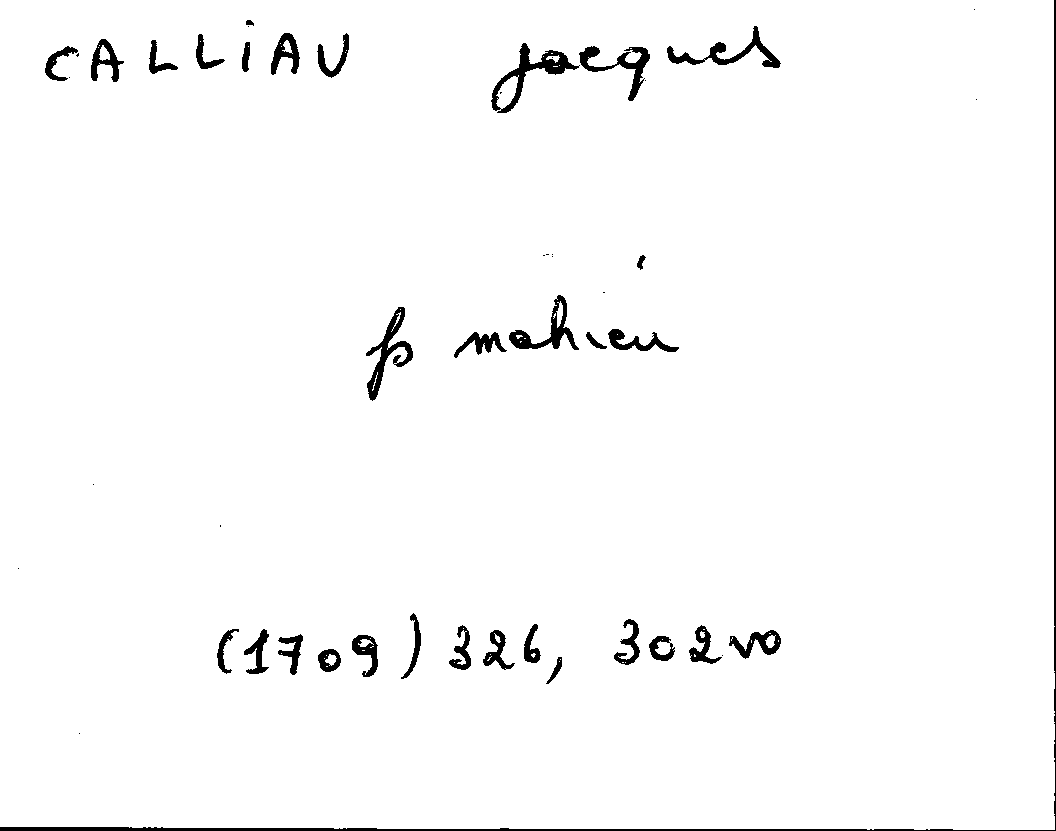 CALLIAU jacques
fs mahieu
(1709) 326, 302 vo